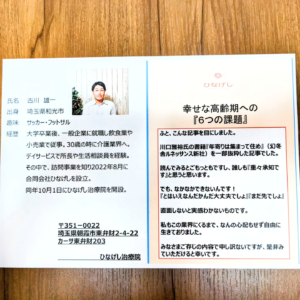 氏名　古川 雄一
出身　埼玉県和光市
趣味　サッカー・フットサル
経歴　大学卒業後、一般企業に就職し飲食業や
小売業で従事。30歳の時に介護業界へ。
デイサービスで所長や生活相談員を経験。
その中で、訪問事業を知り2022年8月に
合同会社ひなたを設立。
同年10月1日にひなげし治療院を開設。
〒351-0022
埼玉県朝霞市東弁財2-4-22
カーサ東弁財203
ひなげし治療院
ひなげし
幸せな高齢期への
『6つの課題』
ふと、こんな記事を目にしました。
川口雅裕氏の書籍「年寄りは集まって住め」（幻冬
舎ルネッサンス新社）を一部抜粋した記事でした。
読んでみるとどうってもすし、誰しも「重々承知だ
です」と思っています。
でも、なかなかできないんです！
『とはいえなんだかんだ大丈夫でしょ』『まだ先でしょ』
直面しないと実感わかないものです。
私もこの業界にくるまで、なんの心配もせず自由に
生きておりました。
みなさまご存じの内容で申し訳ないですが、是非み
ていただけると幸いです。